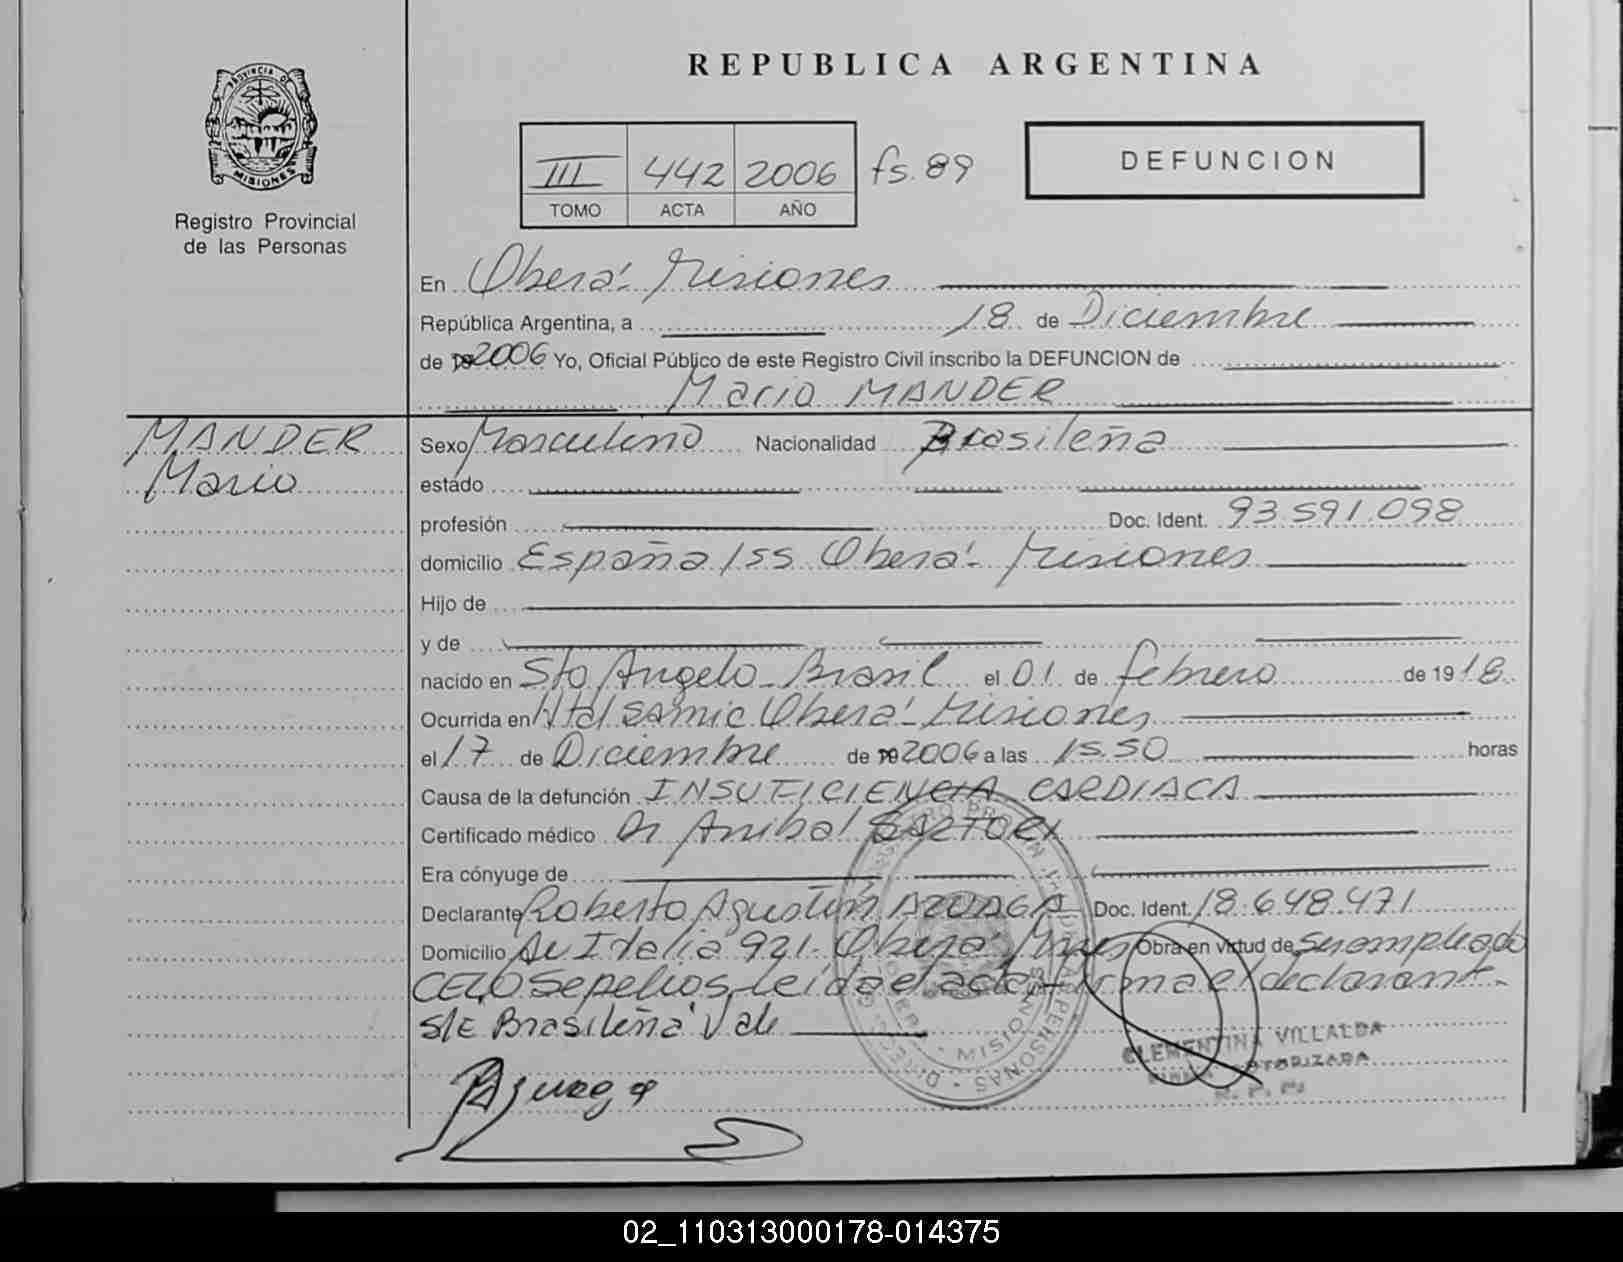 REPUBLICA ARGENTINA
PROVINCIA DE
MISIONES
Registro Provincial
de las Personas
III 442 2006 fs. 89
TOMO ACTA AÑO
DEFUNCION
En Oberá - Misiones
República Argentina, a 18 de Diciembre
de 2006 Yo, Oficial Público de este Registro Civil inscribo la DEFUNCION de
Mario MANDER
MANDER
Mario
Sexo Masculino Nacionalidad Brasileña
estado
profesión Doc. Ident. 93.591.098
domicilio España 155 Oberá - Misiones
Hijo de
y de
nacido en Sto Angelo - Brasil el 01 de febrero de 1918
Ocurrida en Htal SAMIC Oberá - Misiones
el 17 de Diciembre de 2006 a las 15.50 horas
Causa de la defunción INSUFICIENCIA CARDIACA
Certificado médico Dr Anibal SARTORI
Era cónyuge de
Declarante Roberto Agustín AZUAGA Doc. Ident. 18.648.471
Domicilio Av Italia 921 - Oberá - Mnes Obra en virtud de ser empleado
CELO Sepelios, Leída el acta firma el declarante -
S/E Brasileña Vale
Azuaga
MISIONES
CLEMENTINA VILLALBA
FIRMA AUTORIZADA
02_110313000178-014375